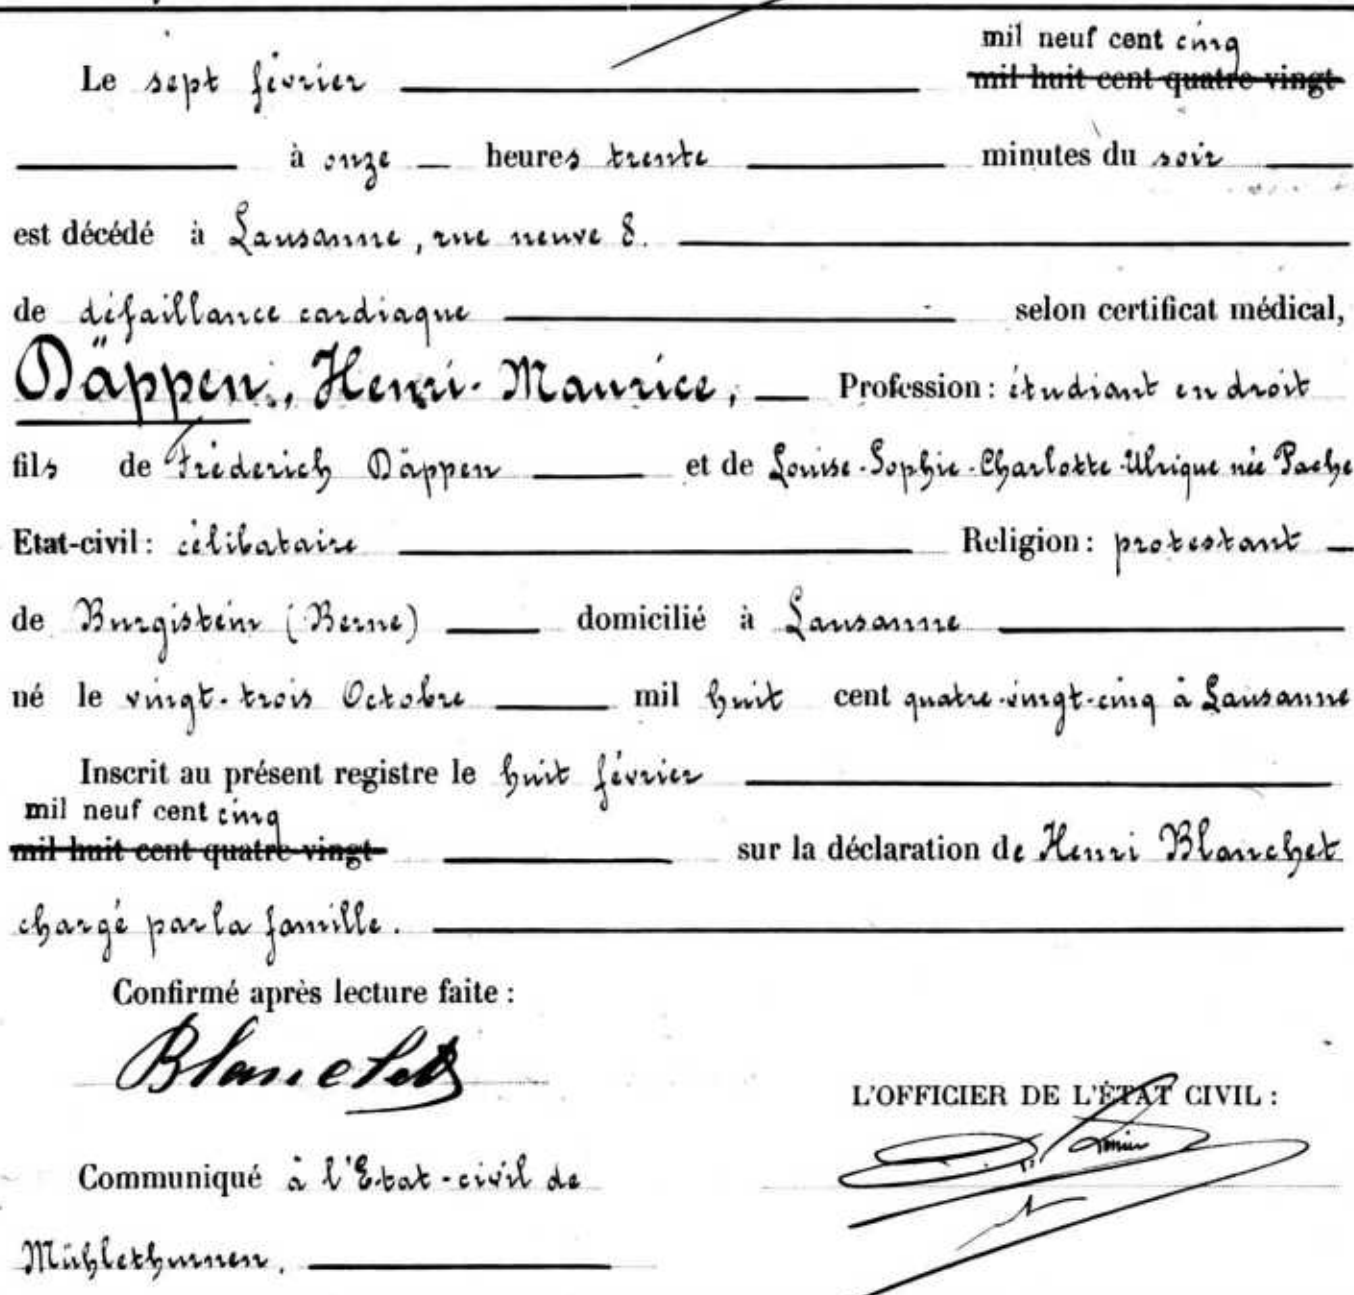 mil neuf cent cinq
Le sept février mil huit cent quatre-vingt
à onze heures trente minutes du soir
est décédé à Lausanne, rue neuve 8.
de défaillance cardiaque selon certificat médical,
Däppen, Henri-Maurice, Profession: étudiant en droit
fils de Fréderich Däppen et de Louise-Sophie-Charlotte-Ulrique née Pache
Etat-civil: célibataire Religion: protestant
de Burgistein (Berne) domicilié à Lausanne
né le vingt-trois Octobre mil huit cent quatre-vingt-cinq à Lausanne
Inscrit au présent registre le huit février
mil neuf cent cinq
mil huit cent quatre-vingt sur la déclaration de Henri Blanchet
chargé par la famille.
Confirmé après lecture faite:
Blanchet
L'OFFICIER DE L'ÉTAT CIVIL:
Communiqué à l'Etat-civil de
Mühlethurnen.